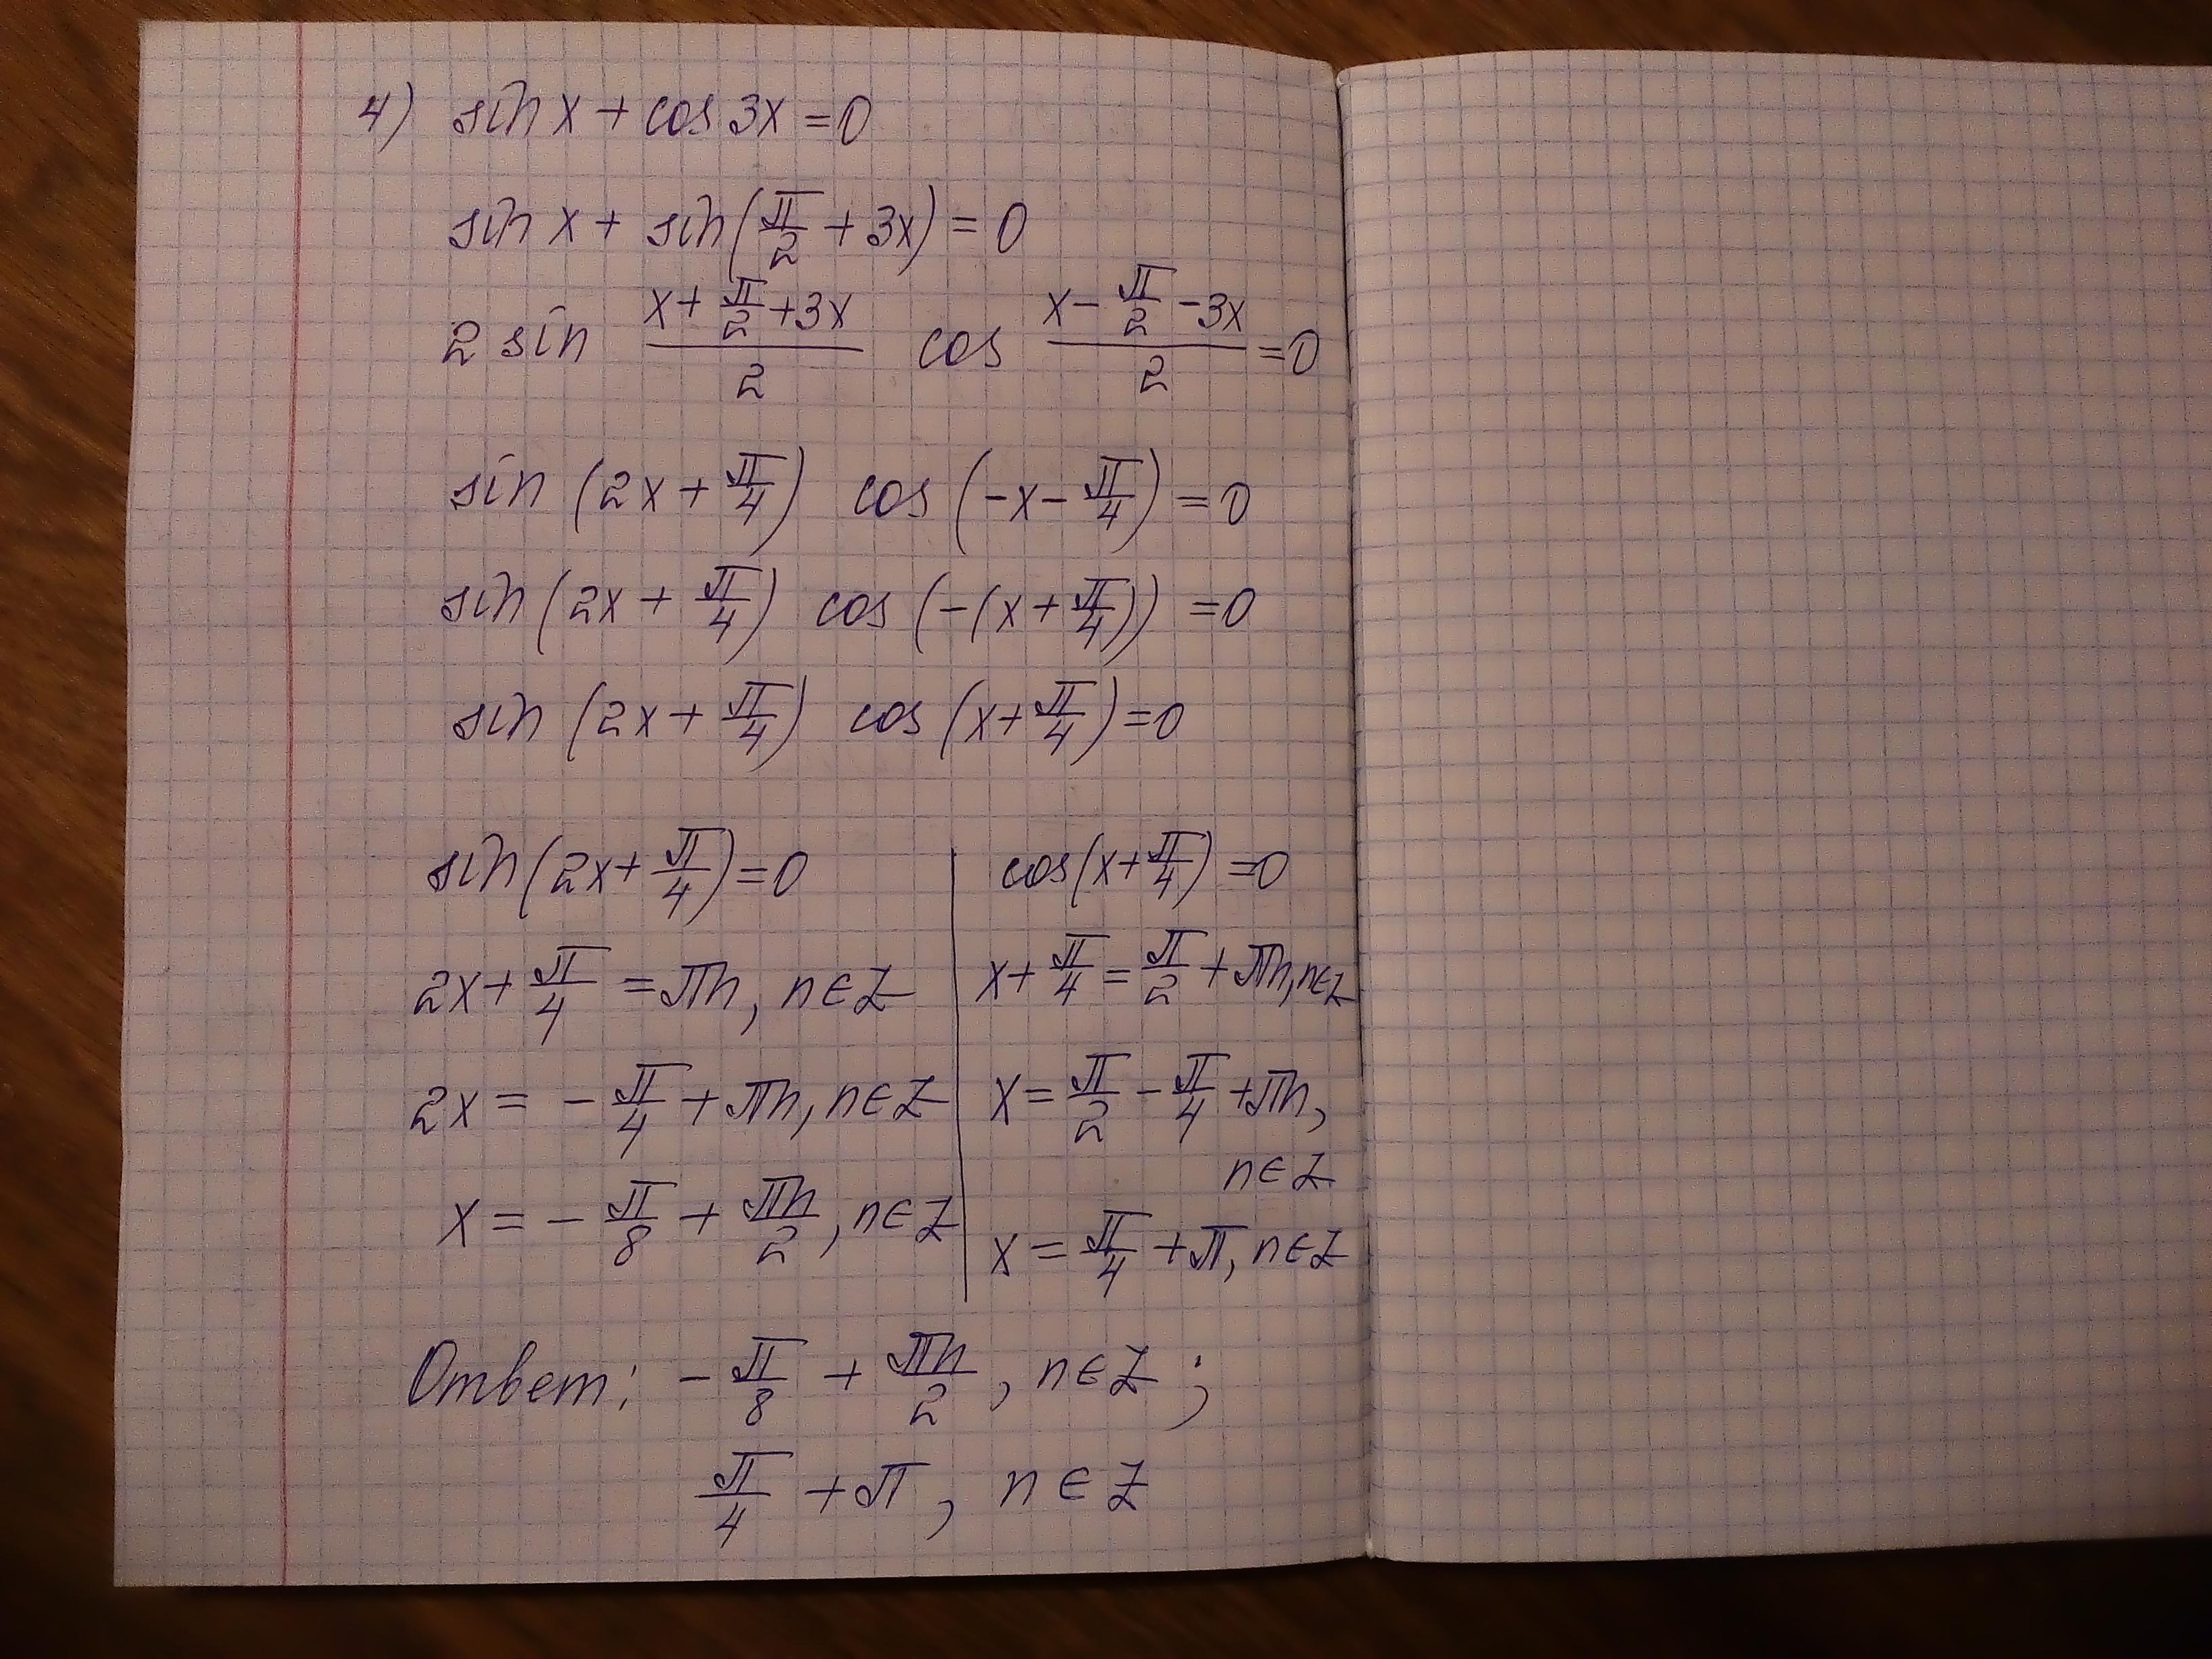 4) sin x + cos 3x = 0
sin x + sin(π/2 + 3x) = 0
2 sin (x + π/2 + 3x)/2 cos (x - π/2 - 3x)/2 = 0
sin (2x + π/4) cos (-x - π/4) = 0
sin (2x + π/4) cos (-(x + π/4)) = 0
sin (2x + π/4) cos (x + π/4) = 0
sin (2x + π/4) = 0
2x + π/4 = πn, n∈Z
2x = - π/4 + πn, n∈Z
x = - π/8 + πn/2, n∈Z
cos (x + π/4) = 0
x + π/4 = π/2 + πn, n∈Z
x = π/2 - π/4 + πn,
n∈Z
x = π/4 + π, n∈Z
Ответ: - π/8 + πn/2, n∈Z;
π/4 + π, n∈Z